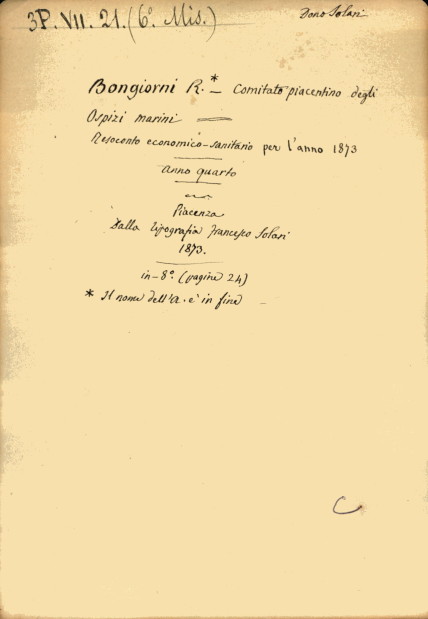 3P. VII. 21. (6°. Mis.)
Dono Solari
Bongiorni R.* — Comitato piacentino degli
Ospizi marini =
Resoconto economico-sanitario per l'anno 1873
Anno quarto
Piacenza
Dalla tipografia Francesco Solari
1873.
in-8°. (pagine 24)
* Il nome dell'A. è in fine —
C